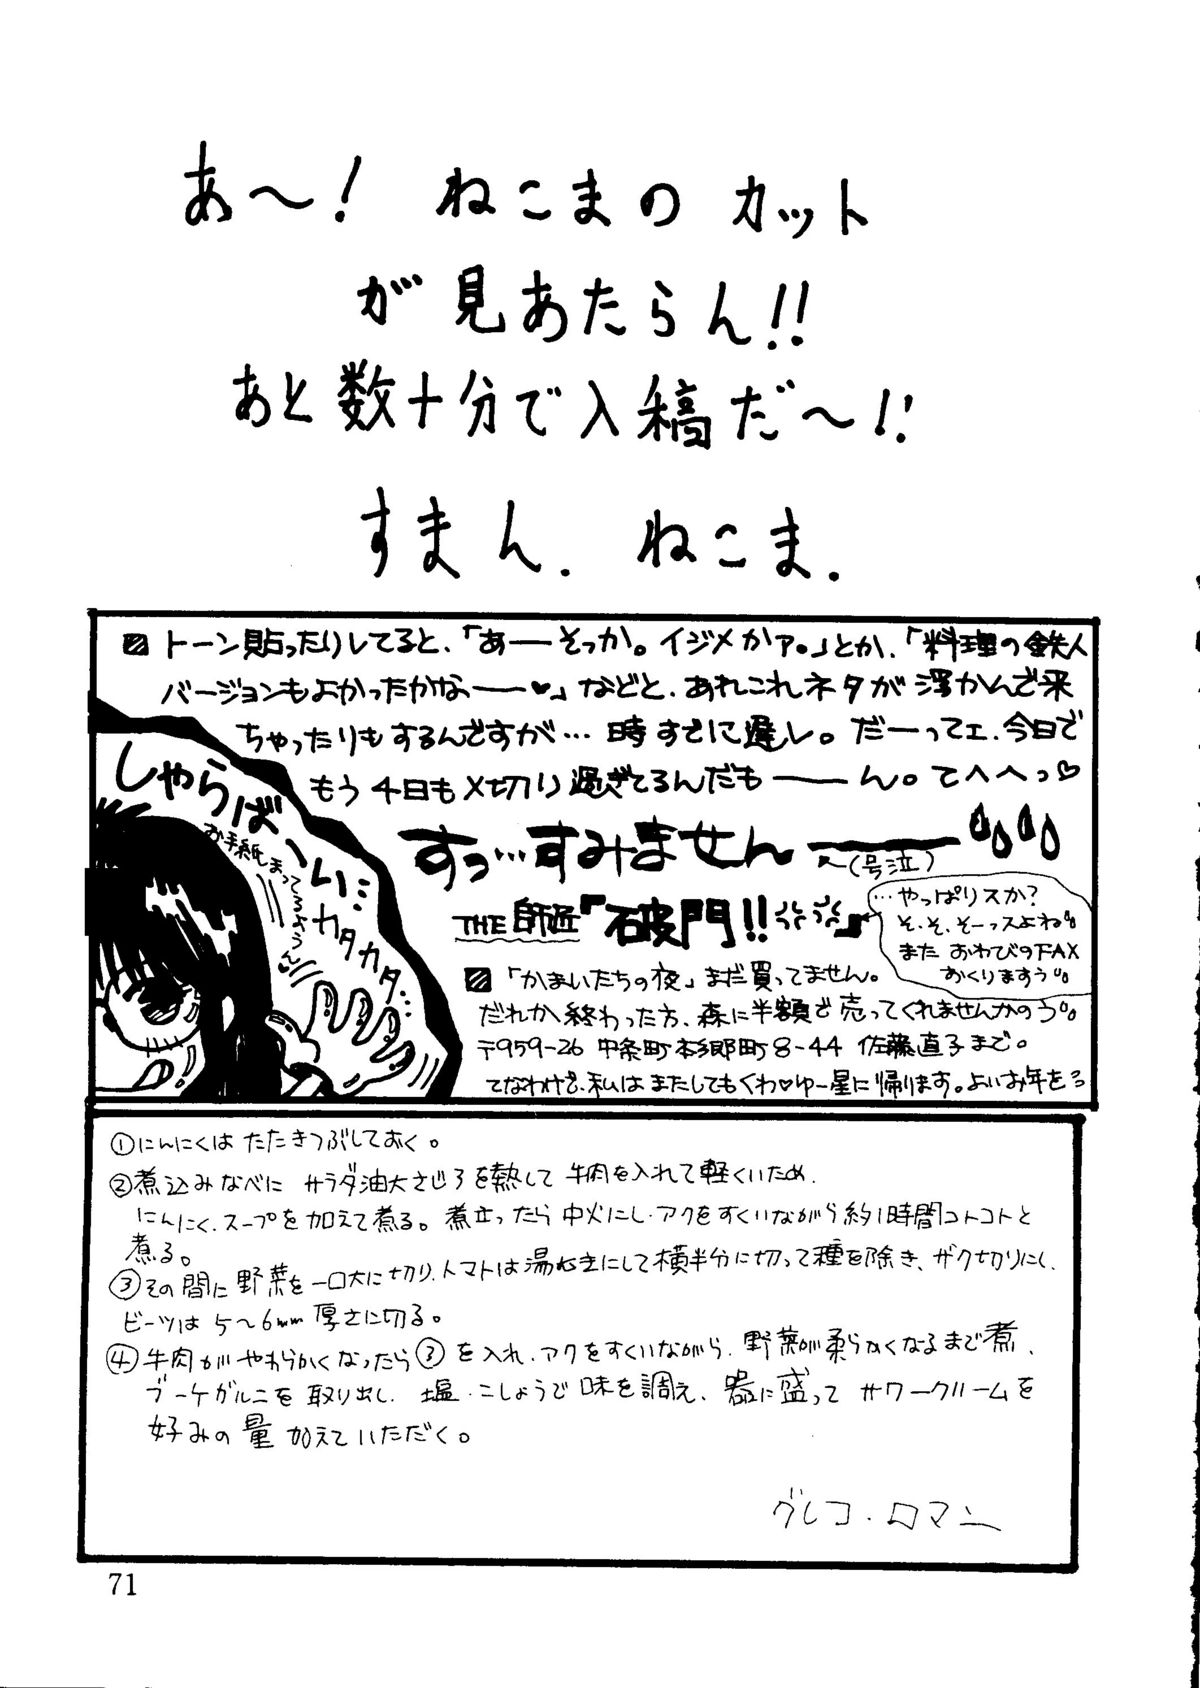 あ～! ねこまの カット
が見あたらん!!
あと数十分で入稿だ～!!
すまん. ねこま.
トーン貼ったりしてると、「あーそっか。イジメかァ。」とか、「料理の鉄人
バージョンもよかったかなー♥」などと、あれこれネタが浮かんで来
ちゃったりもするんですが… 時すでに遅し。だーってェ、今日で
もう4日も〆切り過ぎてるんだもーん。てへへっ♡
すっ…すみませんー
～(号泣)
THE 師匠『破門!!』
…やっぱりスか?
そ、そ、そーっスよね
また おわびのFAX
おくりますぅ
「かまいたちの夜」まだ買ってません。
だれか終わった方、森に半額で売ってくれませんかのう
〒959-26 中条町本郷町8-44 佐藤直子まで。
てなわけで、私はまたしてもくわ♥ゆー星に帰ります。よいお年を
しゃらば、い…
お手紙まってるよぅん
カタカタ…
①にんにくは たたきつぶしておく。
②煮込みなべに サラダ油大さじ3を熱して 牛肉を入れて軽くいため、
にんにく、スープを加えて煮る。煮立ったら 中火にし、アクをすくいながら約1時間コトコトと
煮る。
③その間に野菜を一口大に切り、トマトは湯むきにして横半分に切って種を除き、ザク切りにし、
ビーツは5～6mm厚さに切る。
④牛肉がやわらかくなったら③を入れ、アクをすくいながら、野菜が柔らかくなるまで煮、
ブーケガルニを取り出し、塩・こしょうで味を調え、器に盛って サワークリームを
好みの量 加えていただく。
グレコ・ロマン
71